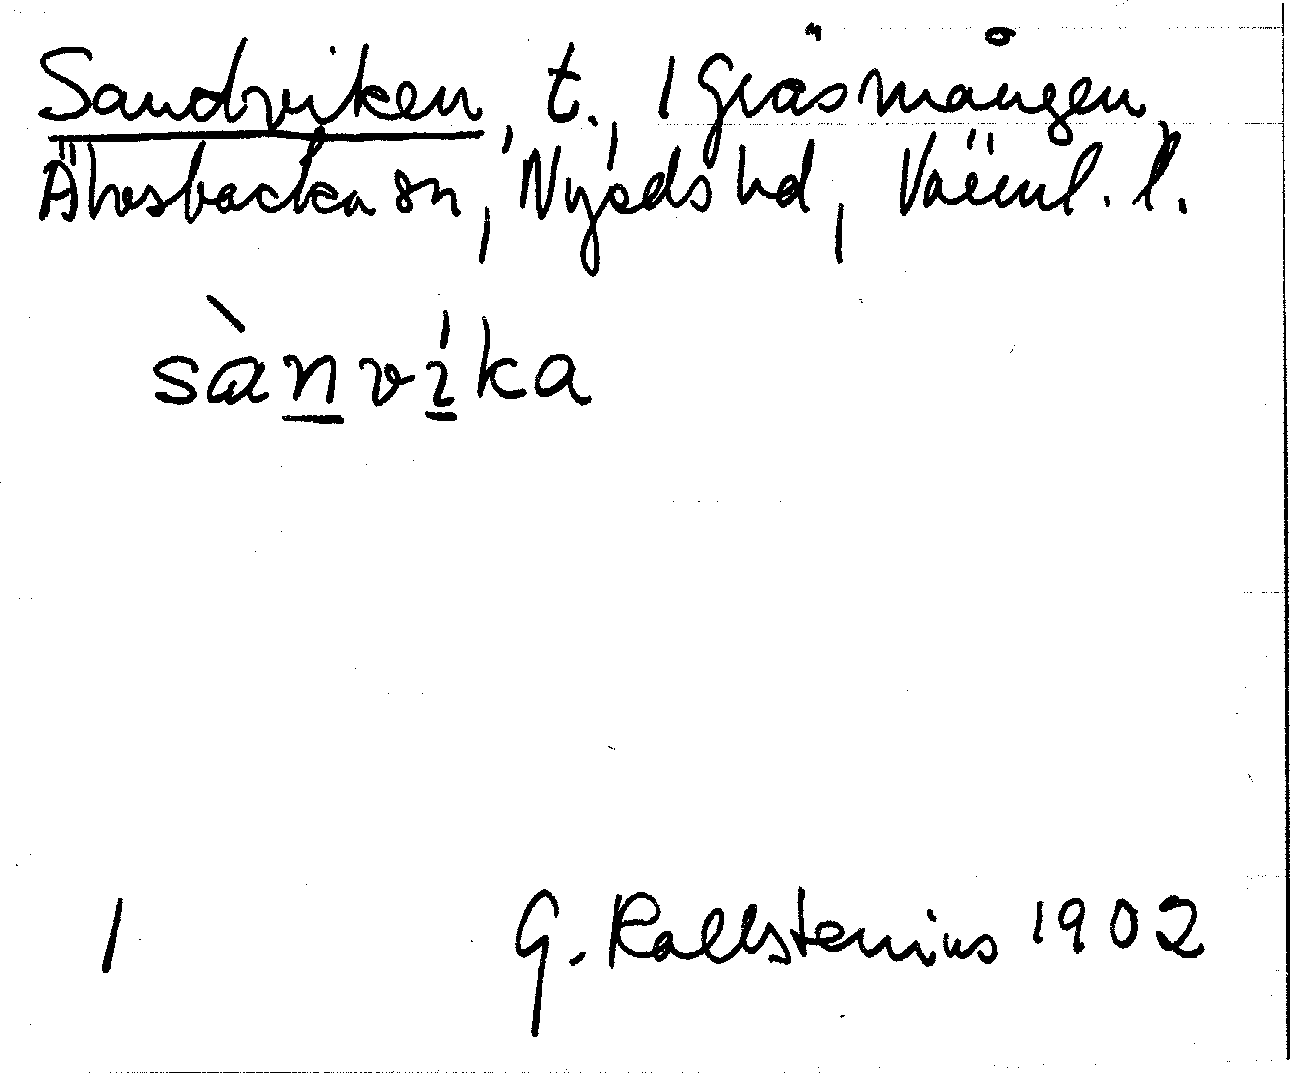 Sandviken, t., 1 Gräsmången,
Älvsbacka sn, Nyeds hd, Värml. l.
sànvíka
1 G. Kallstenius 1902